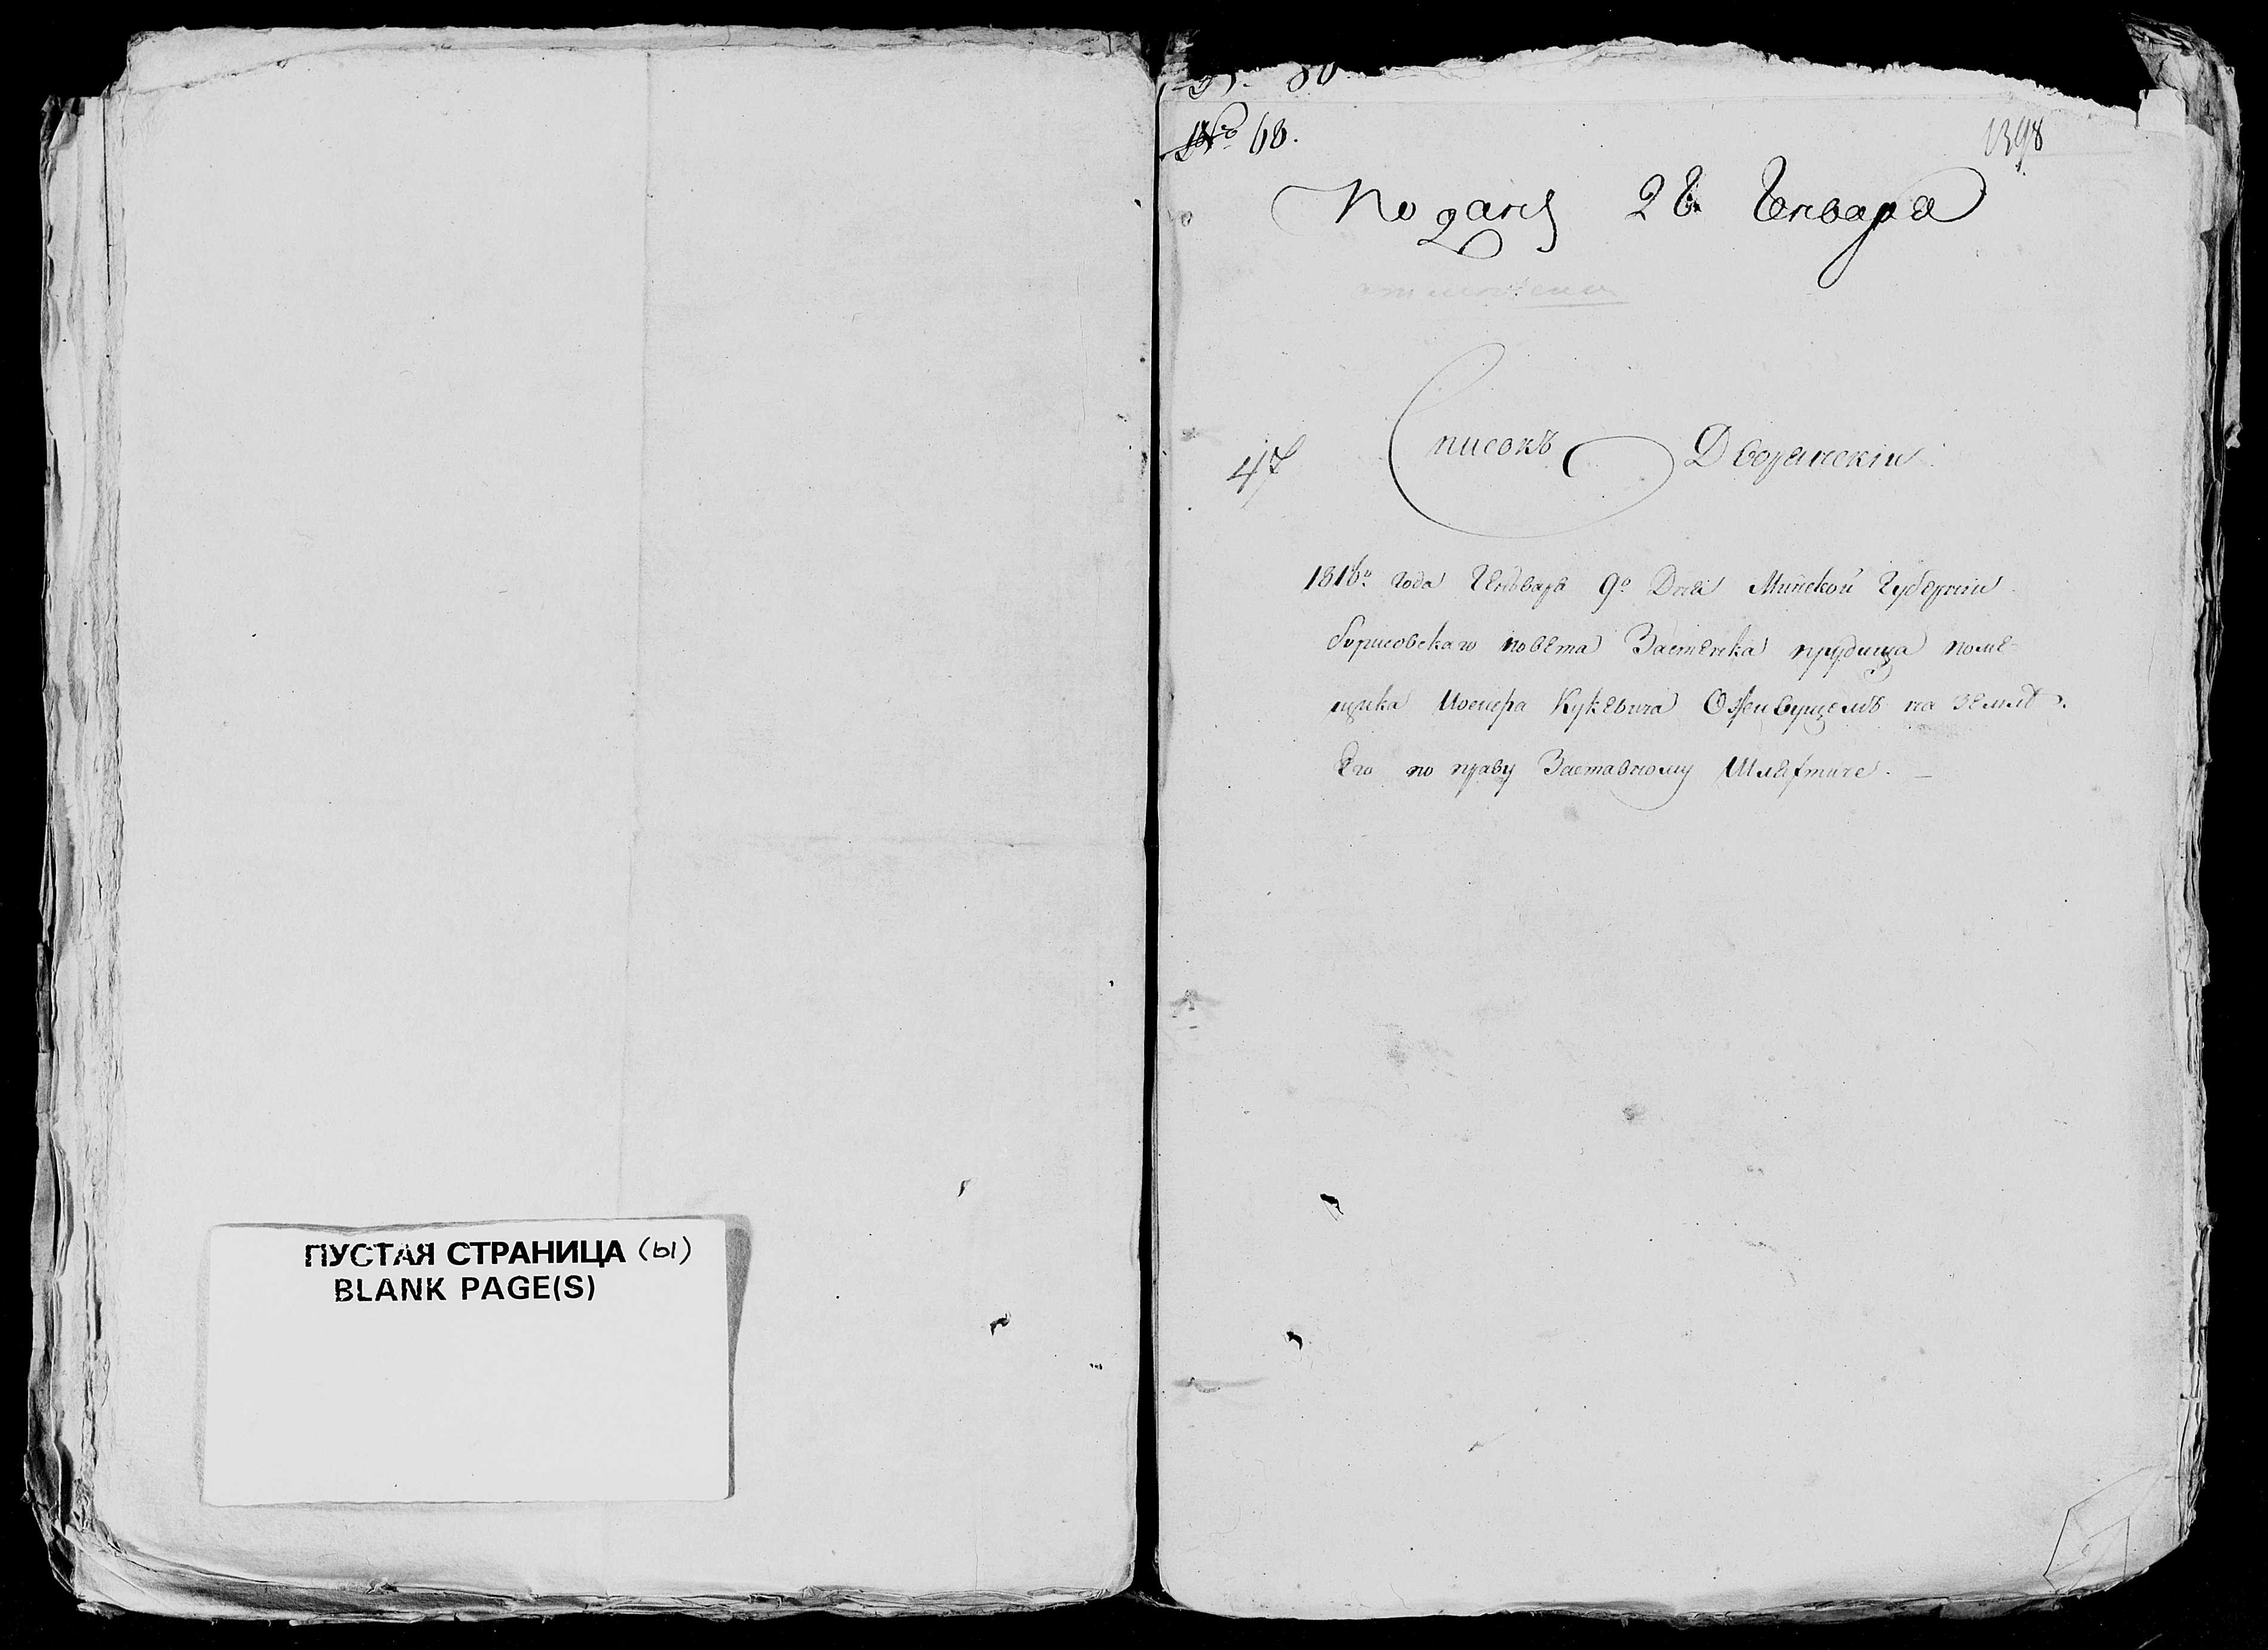 ПУСТАЯ СТРАНИЦА (ы)
BLANK PAGE(S)
№ 68.
1398
Подан 28 Генваря
47
Списокъ Дворянскiи
1816º года Генъваря 9º Дня Минской Губернiи
борисовскаго повета Застенка прудища поме-
щика Кукевича Оживущемъ на Земле
Его по праву Заставному Шляхтиче. —